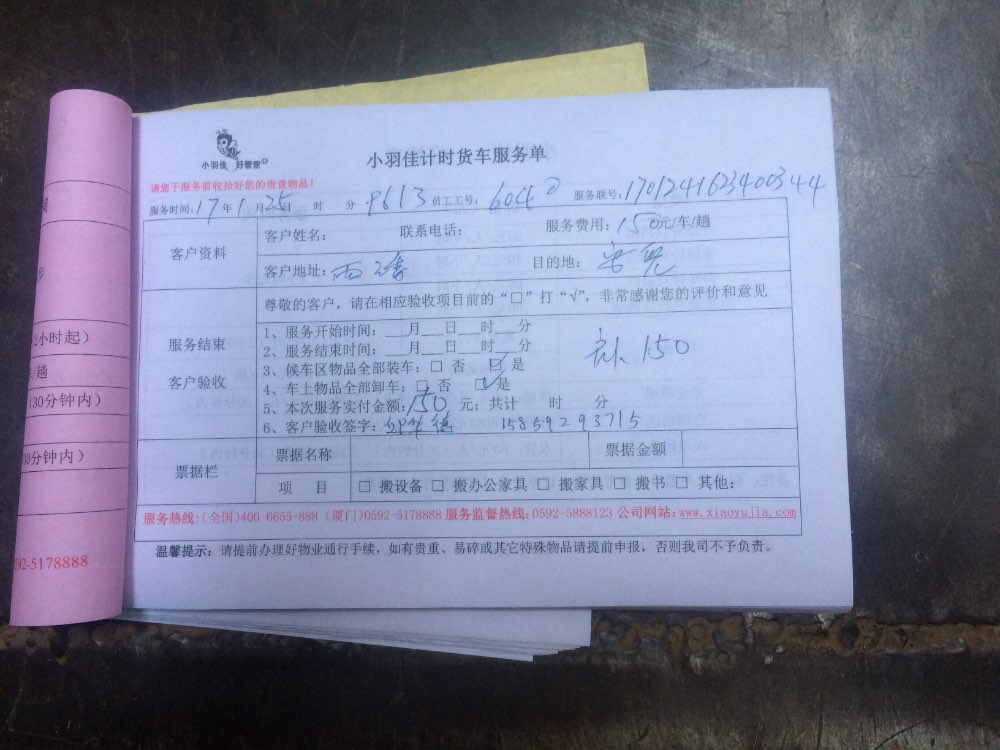 小羽佳 好管家
小羽佳计时货车服务单
请您于服务前收拾好您的贵重物品!
服务时间:17年1月25日 时 分 9613 员工工号:604② 服务联号:1701241623400344
客户资料 客户姓名: 联系电话: 服务费用:150元/车/趟
客户地址: 目的地:
服务结束 客户验收
尊敬的客户,请在相应验收项目前的“□”打“√”,非常感谢您的评价和意见
1、服务开始时间:___月___日___时___分
2、服务结束时间:___月___日___时___分
150
3、候车区物品全部装车:□ 否 □ 是
4、车上物品全部卸车:□ 否 ☑ 是
5、本次服务实付金额:150 元;共计 时 分
6、客户验收签字: 15859293715
票据栏 票据名称 票据金额
项 目 □ 搬设备 □ 搬办公家具 □ 搬家具 □ 搬书 □ 其他:
服务热线:(全国)400-6655-888 (厦门)0592-5178888 服务监督热线:0592-5888123 公司网站:www.xiaoyujia.com
温馨提示:请提前办理好物业通行手续,如有贵重、易碎或其它特殊物品请提前申报,否则我司不予负责。
2小时起)
/趟
(30分钟内)
30分钟内)
92-5178888